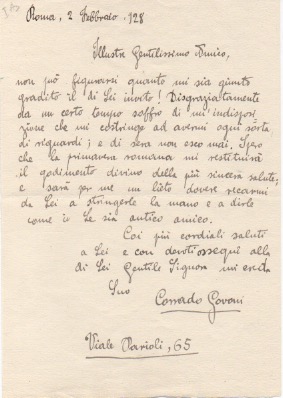 Roma, 2 Febbraio, 928
Illustre Gentilissimo Amico,
non può figurarsi quanto mi sia giunto
gradito il di Lei invito! Disgraziatamente
da un certo tempo soffro di un'indisposi
zione che mi costringe ad avermi ogni sorta
di riguardi; e di sera non esco mai. Spero
che la primavera romana mi restituirà
il godimento divino della più sincera salute;
e sarà per me un lieto dovere recarmi
da Lei a stringerle la mano e a dirle
come io Le sia antico amico.
Coi più cordiali saluti
a Lei e con devoti ossequi alla
di Lei Gentile Signora mi creda
Suo
Corrado Govoni
Viale Parioli, 65